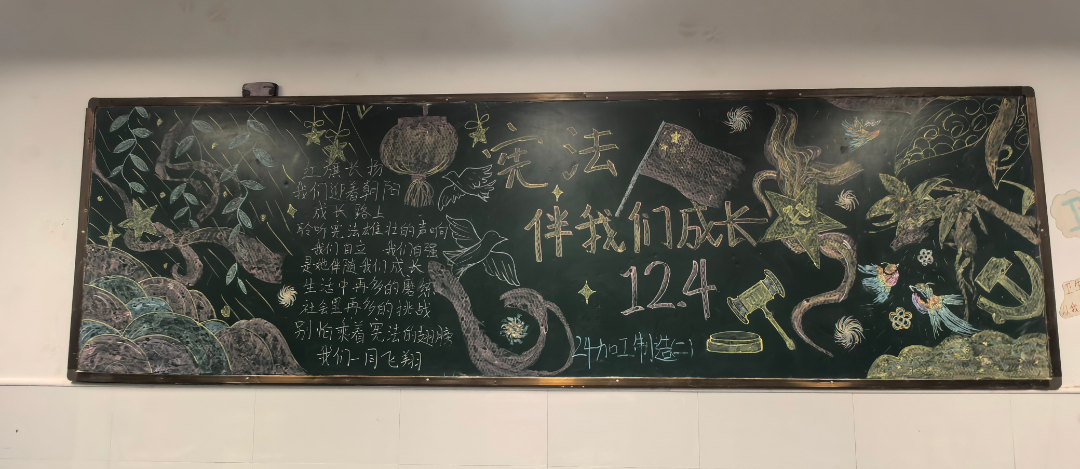 红旗长扬
我们迎着朝阳
成长路上
聆听宪法雄壮的声响
我们自立 我们自强
是她伴随我们成长
生活中再多的磨练
社会里再多的挑战
别怕乘着宪法的翅膀
我们一同飞翔
宪法
伴我们成长
12.4
24加工制造(二)